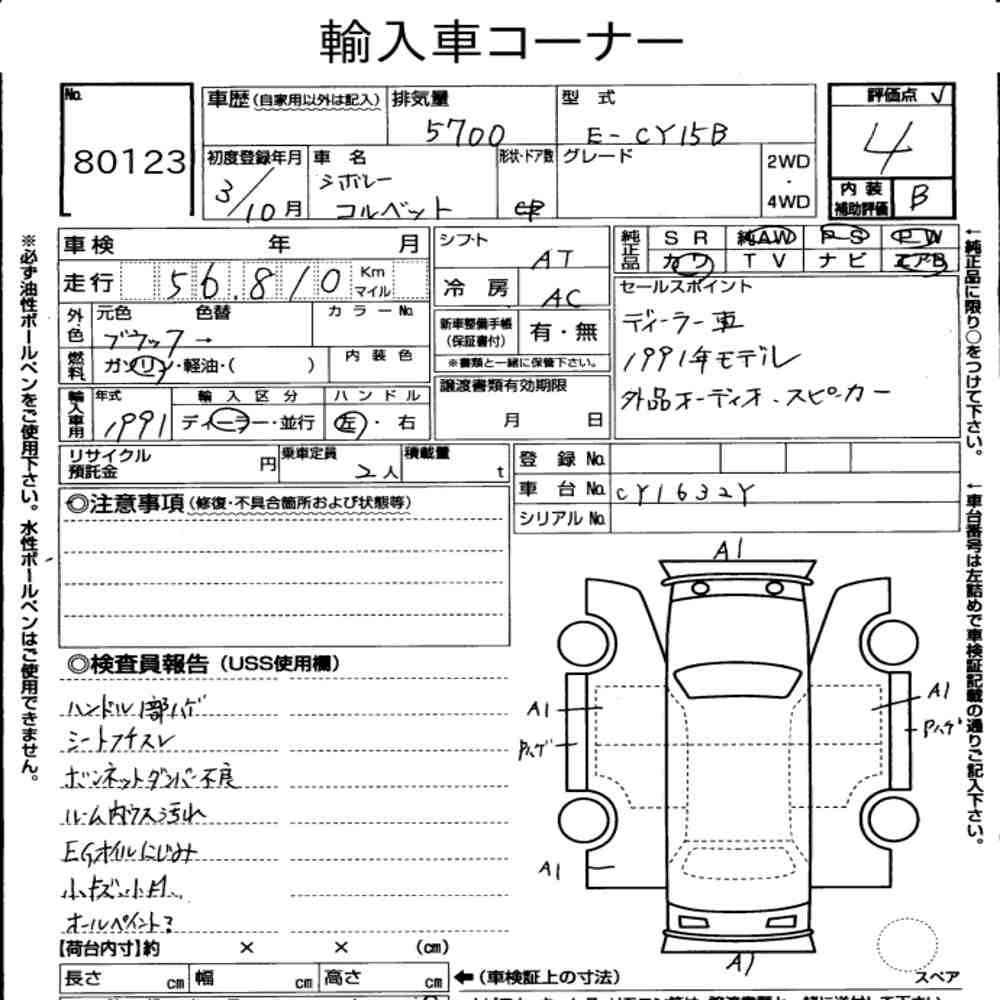 輸入車コーナー
No.
80123
車歴(自家用以外は記入)
排気量
5700
型 式
E-CY15B
評価点 ✓
4
内装
補助評価
B
初度登録年月
3/10月
車 名
シボレー
コルベット
形状・ドア数
グレード
2WD
・
4WD
車検 年 月
走行 56.810 Km
マイル
外色
元色 色替
ブラック →
カラーNo.
燃料
ガソリン・軽油・( )
内装色
輸入車用
年式
1991
輸入区分
ディーラー・並行
ハンドル
左・右
シフト
AT
冷房
AC
新車整備手帳
(保証書付)
有・無
※書類と一緒に保管下さい。
譲渡書類有効期限
月 日
純正品
SR 純AW P-S PW
カワ TV ナビ エアB
セールスポイント
ディーラー車
1991年モデル
外品オーディオ.スピーカー
リサイクル
預託金
円
乗車定員
2人
積載量
t
登 録 No.
車 台 No. CY1632Y
シリアル No.
◎注意事項(修復・不具合箇所および状態等)
◎検査員報告(USS使用欄)
ハンドル1部ハゲ
シートフチスレ
ボンネットダンパー不良
ルーム内ウス汚れ
EGオイルにじみ
オールペイント?
A1
A1
Pハゲ
A1
Pハゲ
A1
A1
【荷台内寸】約 × × (cm)
長さ cm 幅 cm 高さ cm
←(車検証上の寸法)
スペア
※必ず油性ボールペンをご使用下さい。水性ボールペンはご使用できません。
←純正品に限り○をつけて下さい。
←車台番号は左詰めで車検証記載の通りご記入下さい。